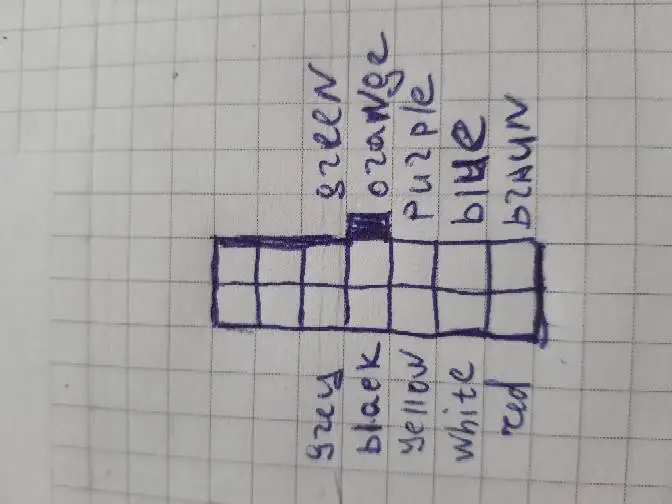 green
orange
purple
blue
braun
grey
black
yellow
white
red